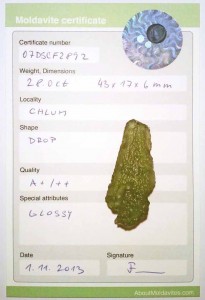 Moldavite certificate
Certificate number
07DSCF2892
Weight, Dimensions
28.0ct 43x17x6mm
Locality
CHLUM
Shape
DROP
Quality
A+/++
Special attributes
GLOSSY
Date
Signature
1.11.2013
AboutMoldavites.com